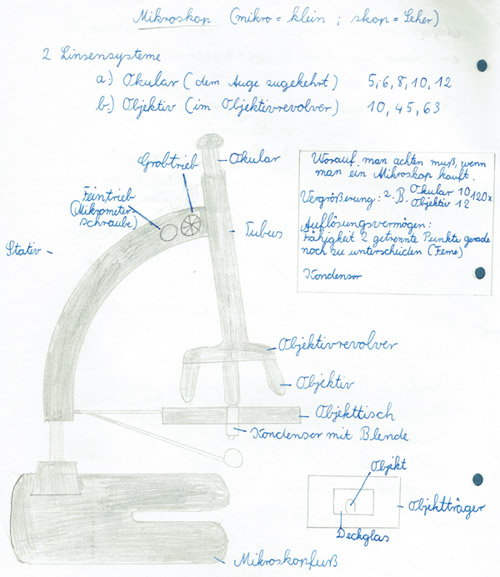 Mikroskop (mikro = klein ; skop = Seher)
2 Linsensysteme
a.) Okular (dem Auge zugekehrt) 5, 6, 8, 10, 12
b.) Objektiv (im Objektivrevolver) 10, 45, 63
Grobtrieb
Okular
Feintrieb
(Mikrometer-
schraube)
Tubus
Stativ
Worauf man achten muß, wenn
man ein Mikroskop kauft.
Vergrößerung: z. B. Okular 10
Objektiv 12
120x
Auflösungsvermögen:
Fähigkeit 2 getrennte Punkte gerade
noch zu unterscheiden
Kondensor
Objektivrevolver
Objektiv
Objekttisch
Kondensor mit Blende
Objekt
Objektträger
Deckglas
Mikroskopfuß